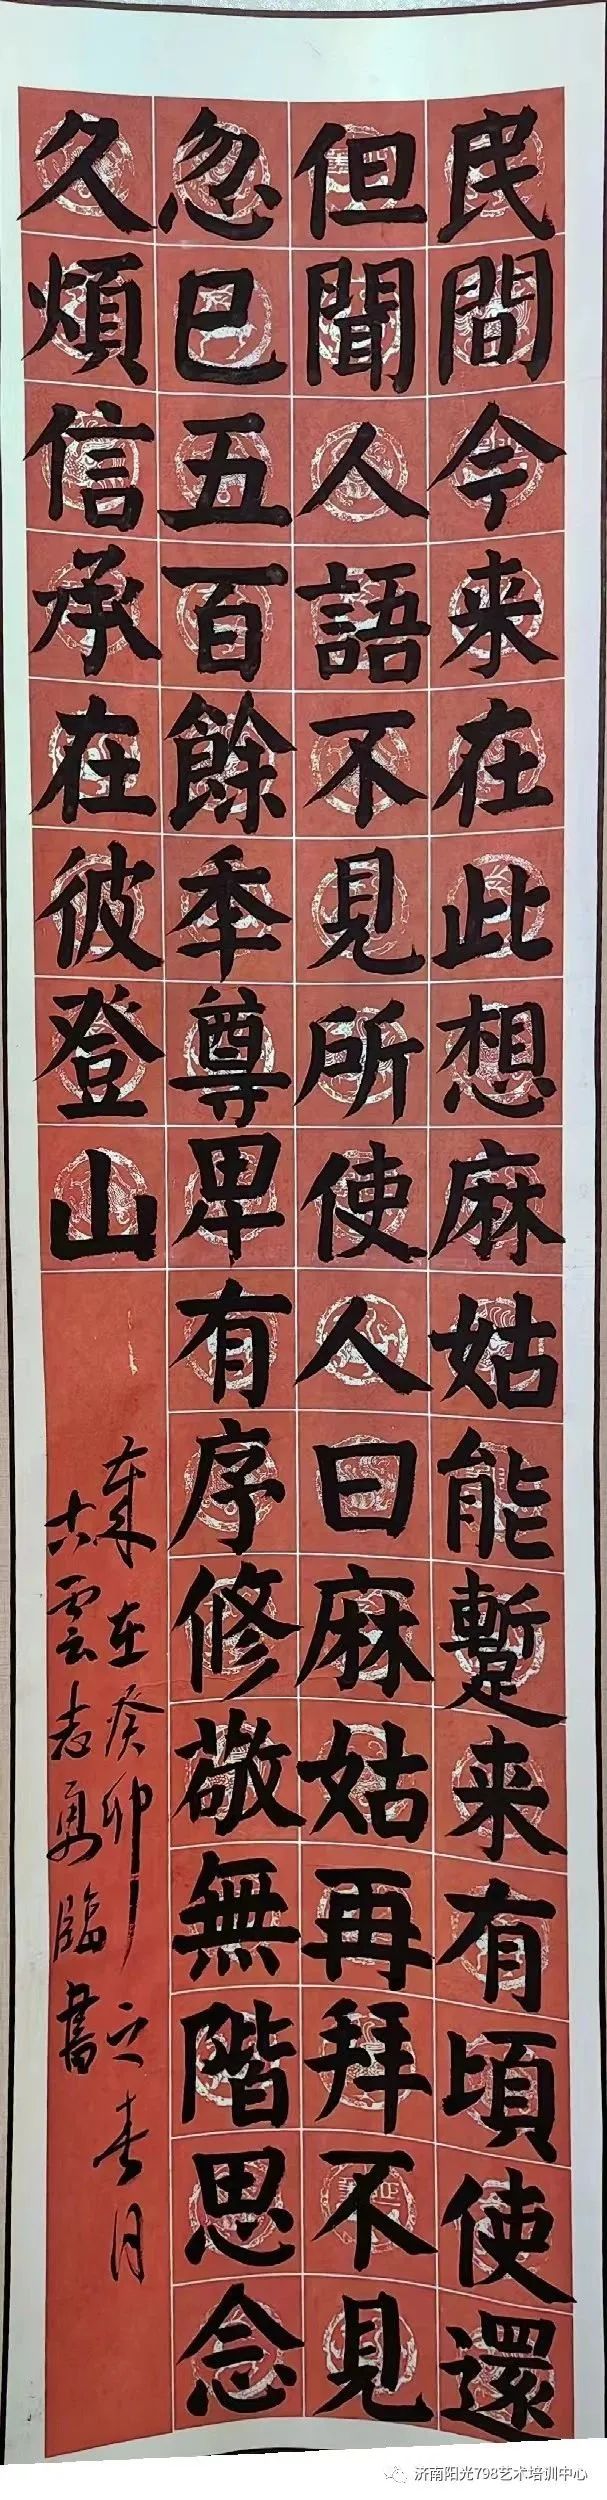 民間今来在此想麻姑能蹔来有頃使還
但聞人語不見所使人曰麻姑再拜不見
忽已五百餘季尊卑有序修敬無階思念
久煩信承在彼登山
歲在癸卯之春月
雲志勇臨書
济南阳光798艺术培训中心